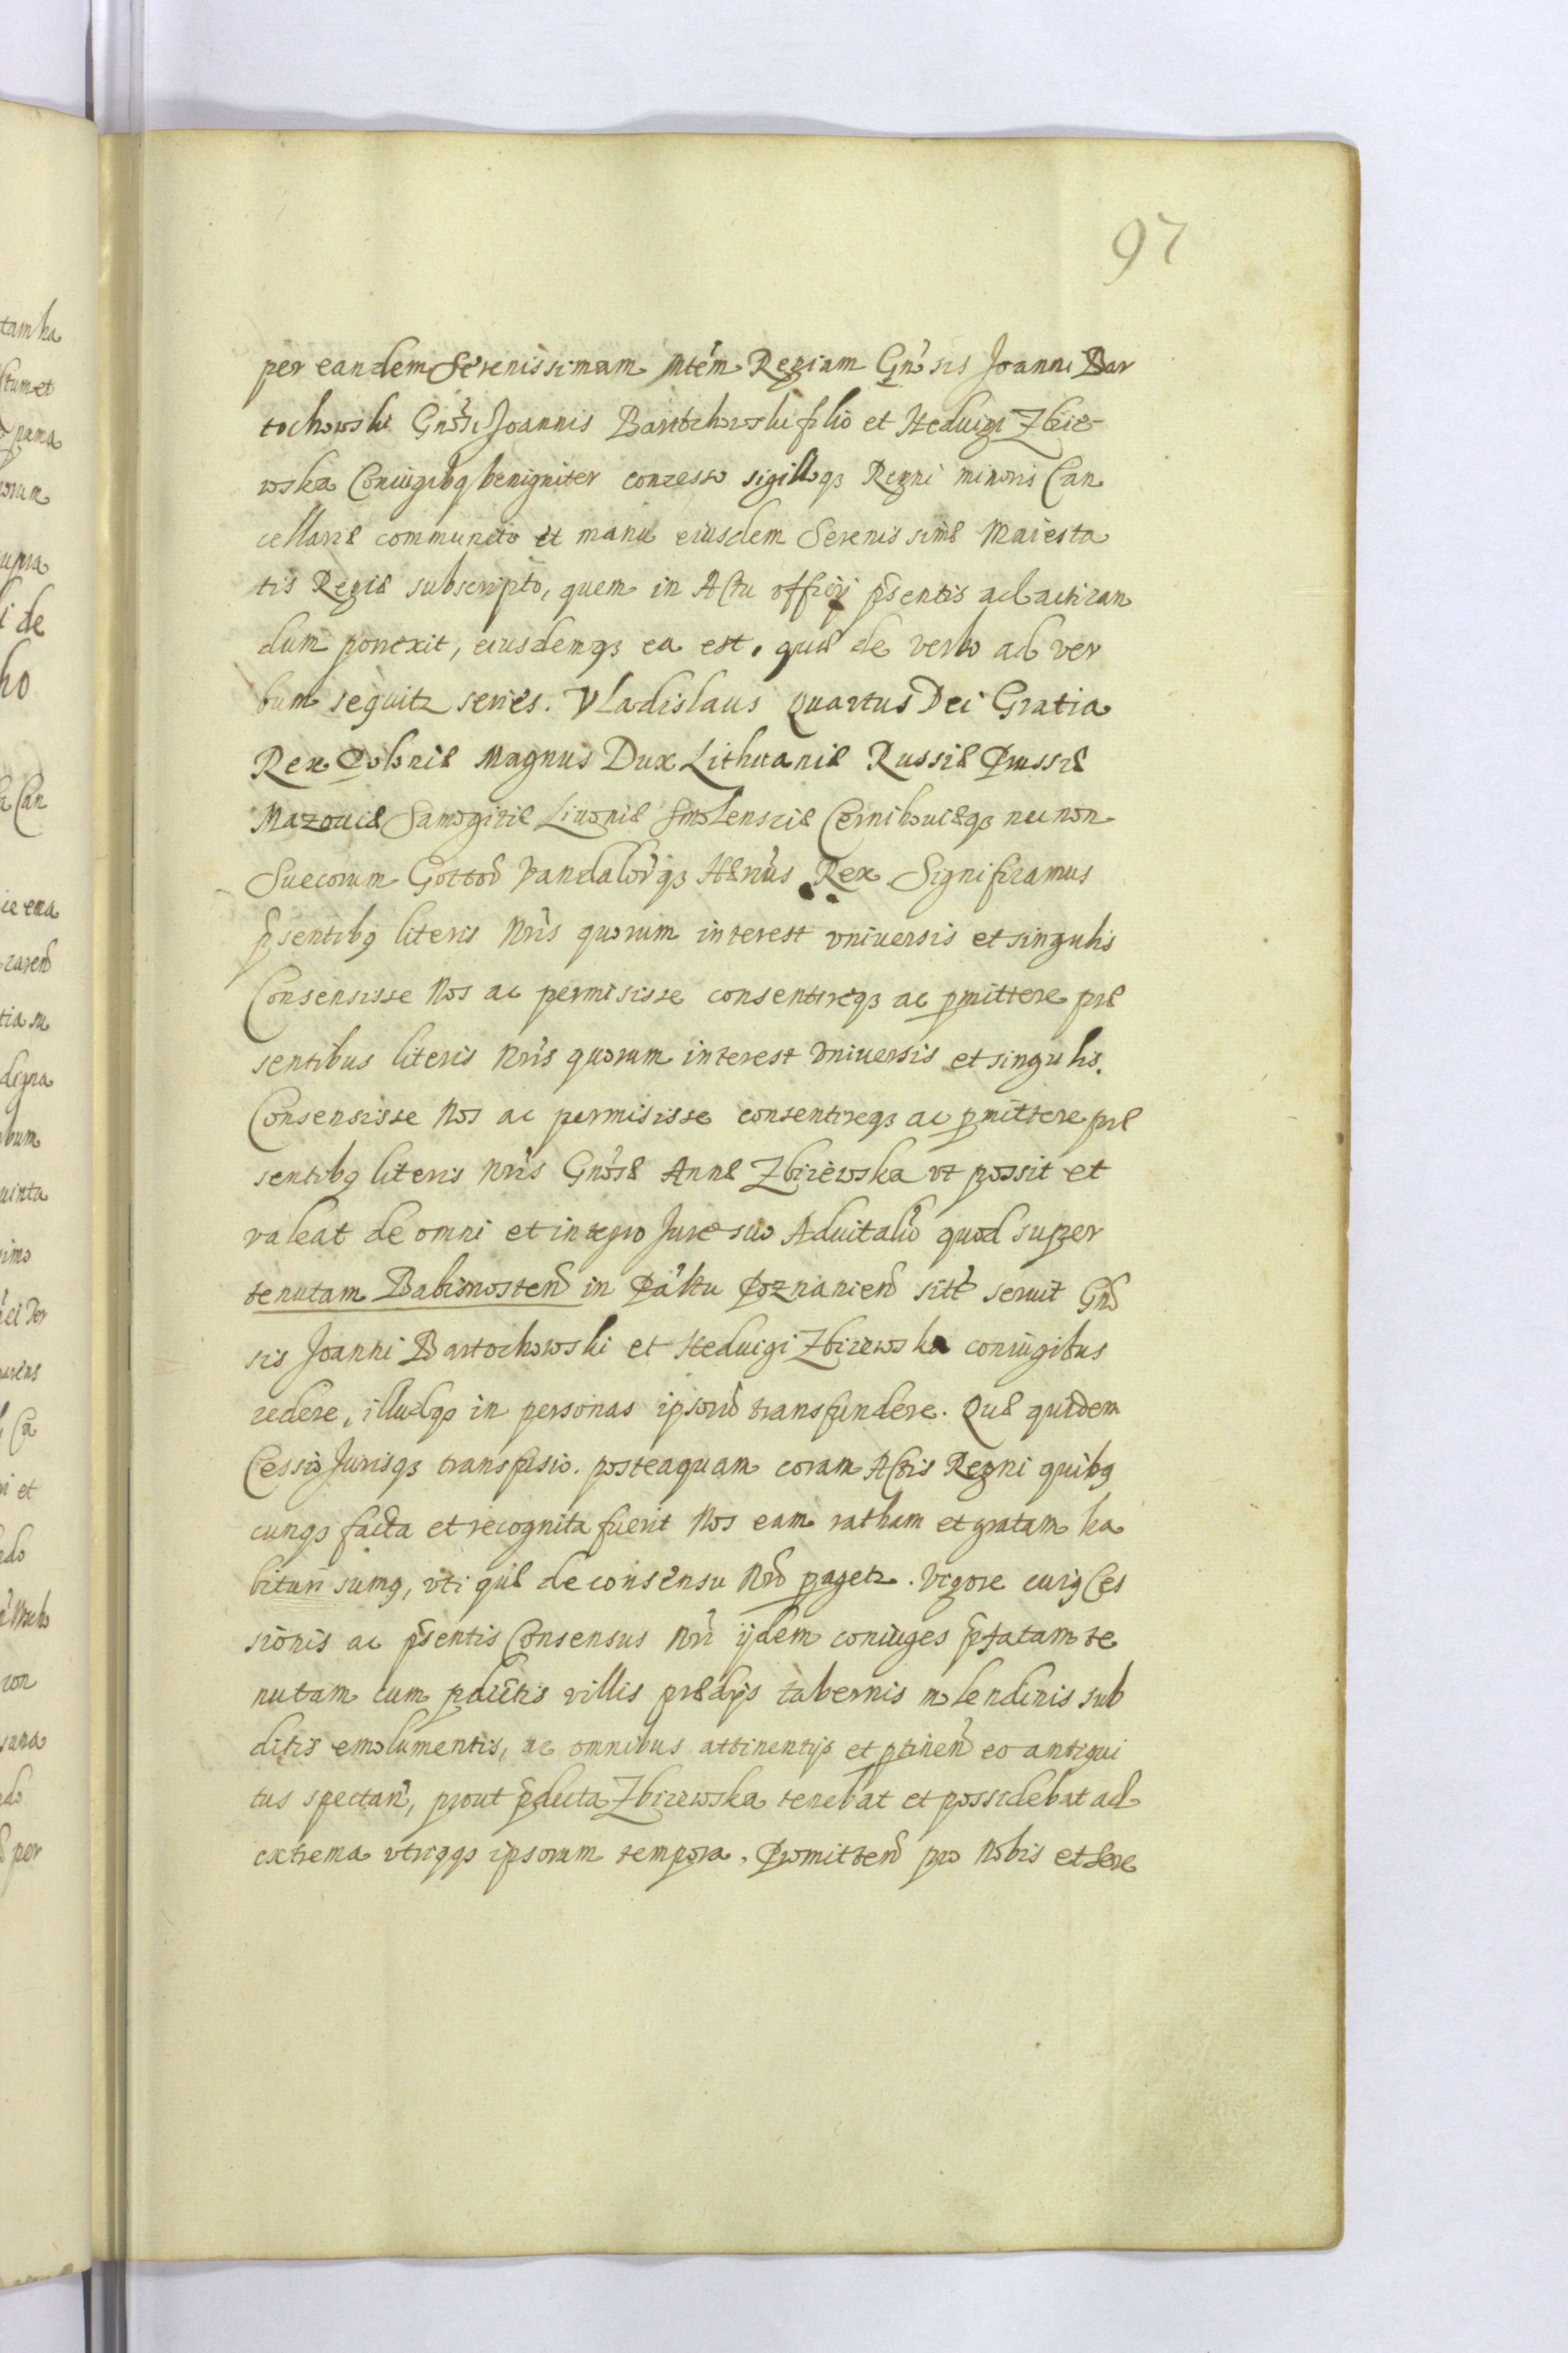 97
per eandem Serenissimam Mtem Regiam Gnosis Joanni Bar
tochowski Gnosi Joannis Bartochowski filio et Heduigi Zbie-
wska Coniugibq benigniter concesso sigilloqʒ Regni minoris Can
cellariæ communito et manu eiusdem Serenissimæ Maiesta
tis Regiæ subscripto, quem in Actu officij pñsentis ad actican
dum porrexit, eiusdemqʒ ea est, quæ de verbo ad ver
bum sequitꝛ series. Vladislaus Quartus Dei Gratia
Rex Poloniæ Magnus Dux Lithuaniæ Russiæ Prussiæ
Mazouiæ Samogitiæ Liuoniæ Smolensciæ Cernihouiæqʒ necnon
Suecorum Gottoȓ Vandaloȓqʒ Hæri̾us Rex Significamus
pñsentibq literis Nris quorum interest vniuersis et singulis
Consensisse Nos ac permisisse consentireqʒ ac ꝑmittere præ
sentibus literis Nris quorum interest Vniuersis et singulis.
Consensisse Nos ac permisisse consentireqʒ ac ꝑmittere præ
sentibq literis Nris Gnosæ Annæ Zbizewska vt possit et
valeat de omni et integro Jure suo Aduitalio quod super
tenutam Babimosten̄ in Pa̾ltu Poznanien̄ sitt̾ seruit Gno
sis Joanni Bartochowski et Heduigi Zbizewska coniugibus
cedere, illudqʒ in personas ipsorū transfundere. Quæ quidem
Cessio Jurisqʒ transfusio posteaquam coram Actis Regni quibq
cunqʒ facta et recognita fuerit Nos eam ratham et gratam ha
bituri sumq, vti quæ de consensu Nro ꝑagetꝛ. Vigore cuiq Ces
sionis ac pñsentis Consensus Nri ijdem coniuges pfatam te
nutam cum pdictis villis prædijs tabernis molendinis sub
ditis emolumentis, ac omnibus attinentijs et ꝑtinen̄ eo antiqui
tus spectan̄, prout pdicta Zbizewska tenebat et possidebat ad
extrema vtriqqʒ ipsorum tempora. Promitten̄ pro Nobis et Sere